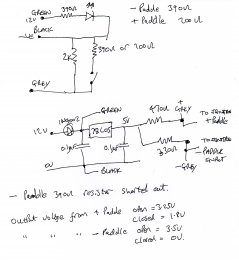 GREEN 390Ω
12V
- Paddle 390Ω
+ Paddle 200Ω
BLACK
2K
390Ω or 200Ω
GREY
1N4002
GREEN
5V
470Ω
+
GREY
TO
+ Paddle
12V
78L05
0.1µF
0.1µF
330Ω
TO
PADDLE
-GREY
0V
BLACK
- Paddle 390Ω resistor shorted out.
Output voltage from + Paddle open = 3.25V
closed = 1.8V
" " " - Paddle open = 3.5V
closed = 0V.